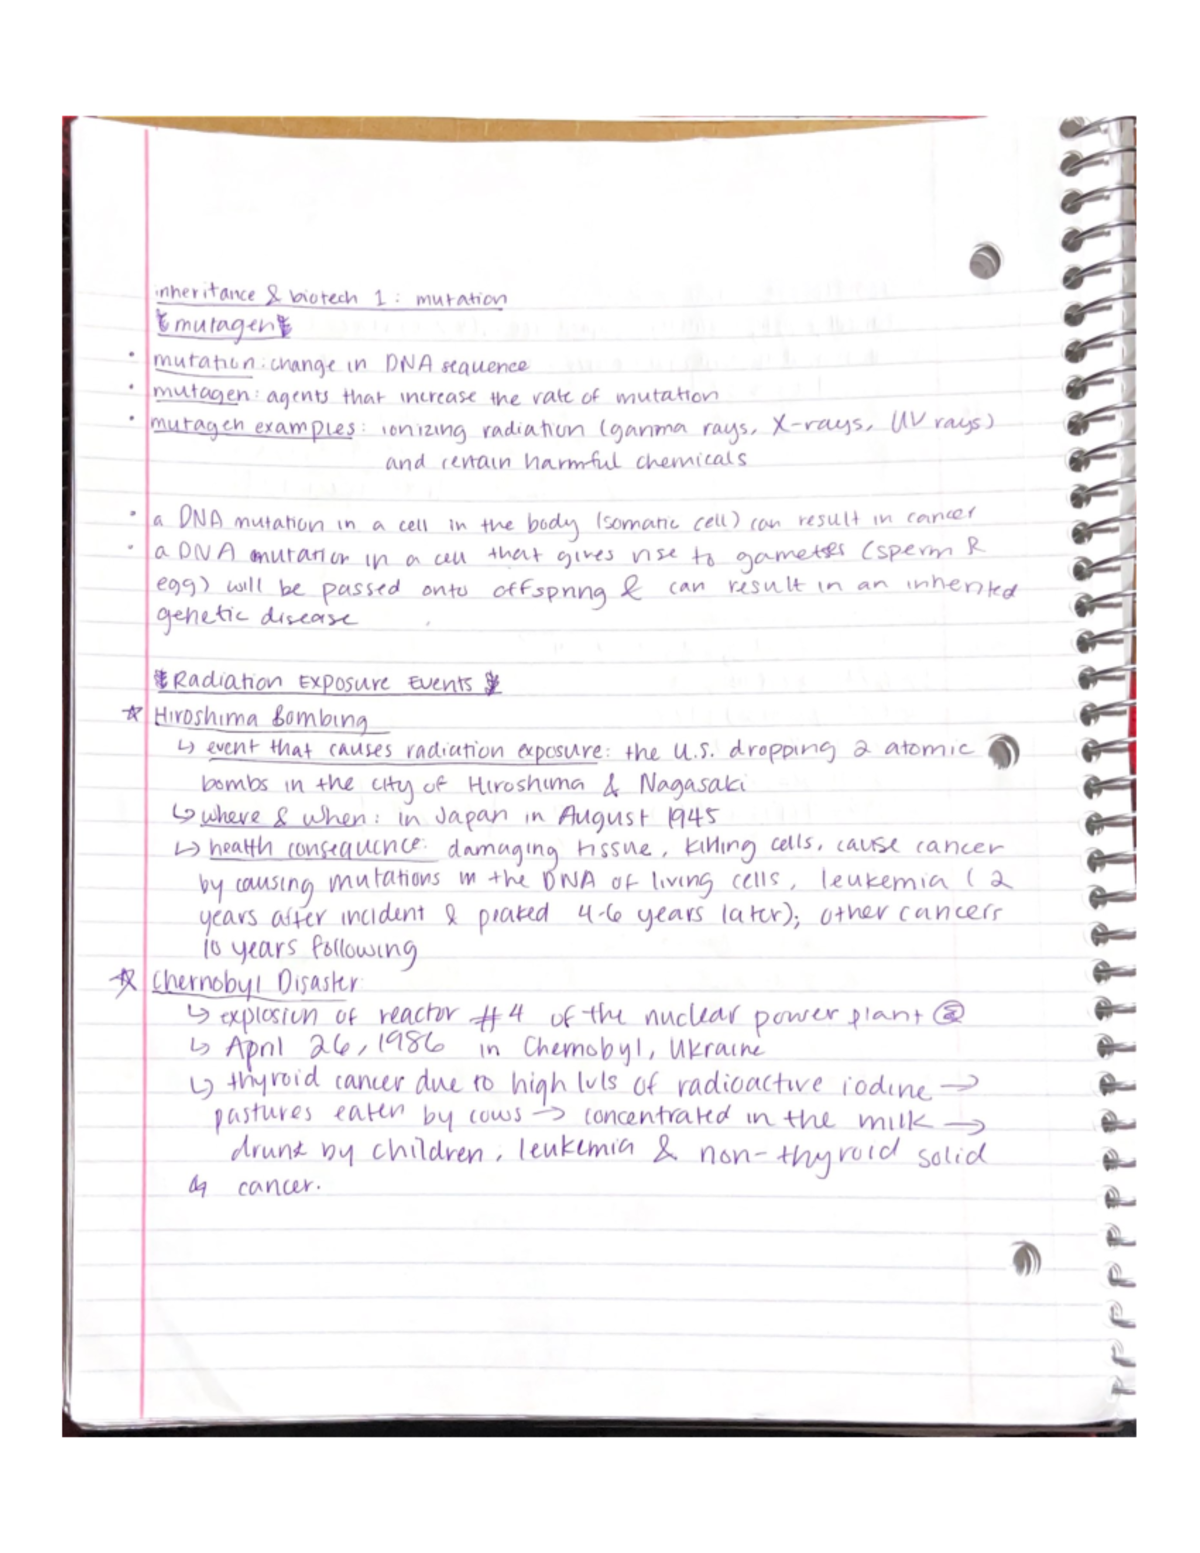 inheritance & biotech 1: mutation
mutagen
• mutation: change in DNA sequence
• mutagen: agents that increase the rate of mutation
• mutagen examples: ionizing radiation (ganma rays, X-rays, UV rays)
and certain harmful chemicals
• a DNA mutation in a cell in the body (somatic cell) can result in cancer
• a DNA mutation in a cell that gives rise to gametes (sperm &
egg) will be passed onto offspring & can result in an inherited
genetic disease
Radiation Exposure Events
☆ Hiroshima Bombing
↳ event that causes radiation exposure: the U.S. dropping 2 atomic
bombs in the city of Hiroshima & Nagasaki
↳ where & when: in Japan in August 1945
↳ health consequence: damaging tissue, killing cells, cause cancer
by causing mutations in the DNA of living cells, leukemia (2
years after incident & peaked 4-6 years later); other cancers
10 years following
☆ Chernobyl Disaster
↳ explosion of reactor #4 of the nuclear power plant
↳ April 26, 1986 in Chernobyl, Ukraine
↳ thyroid cancer due to high lvls of radioactive iodine →
pastures eaten by cows → concentrated in the milk →
drunk by children, leukemia & non-thyroid solid
cancer.